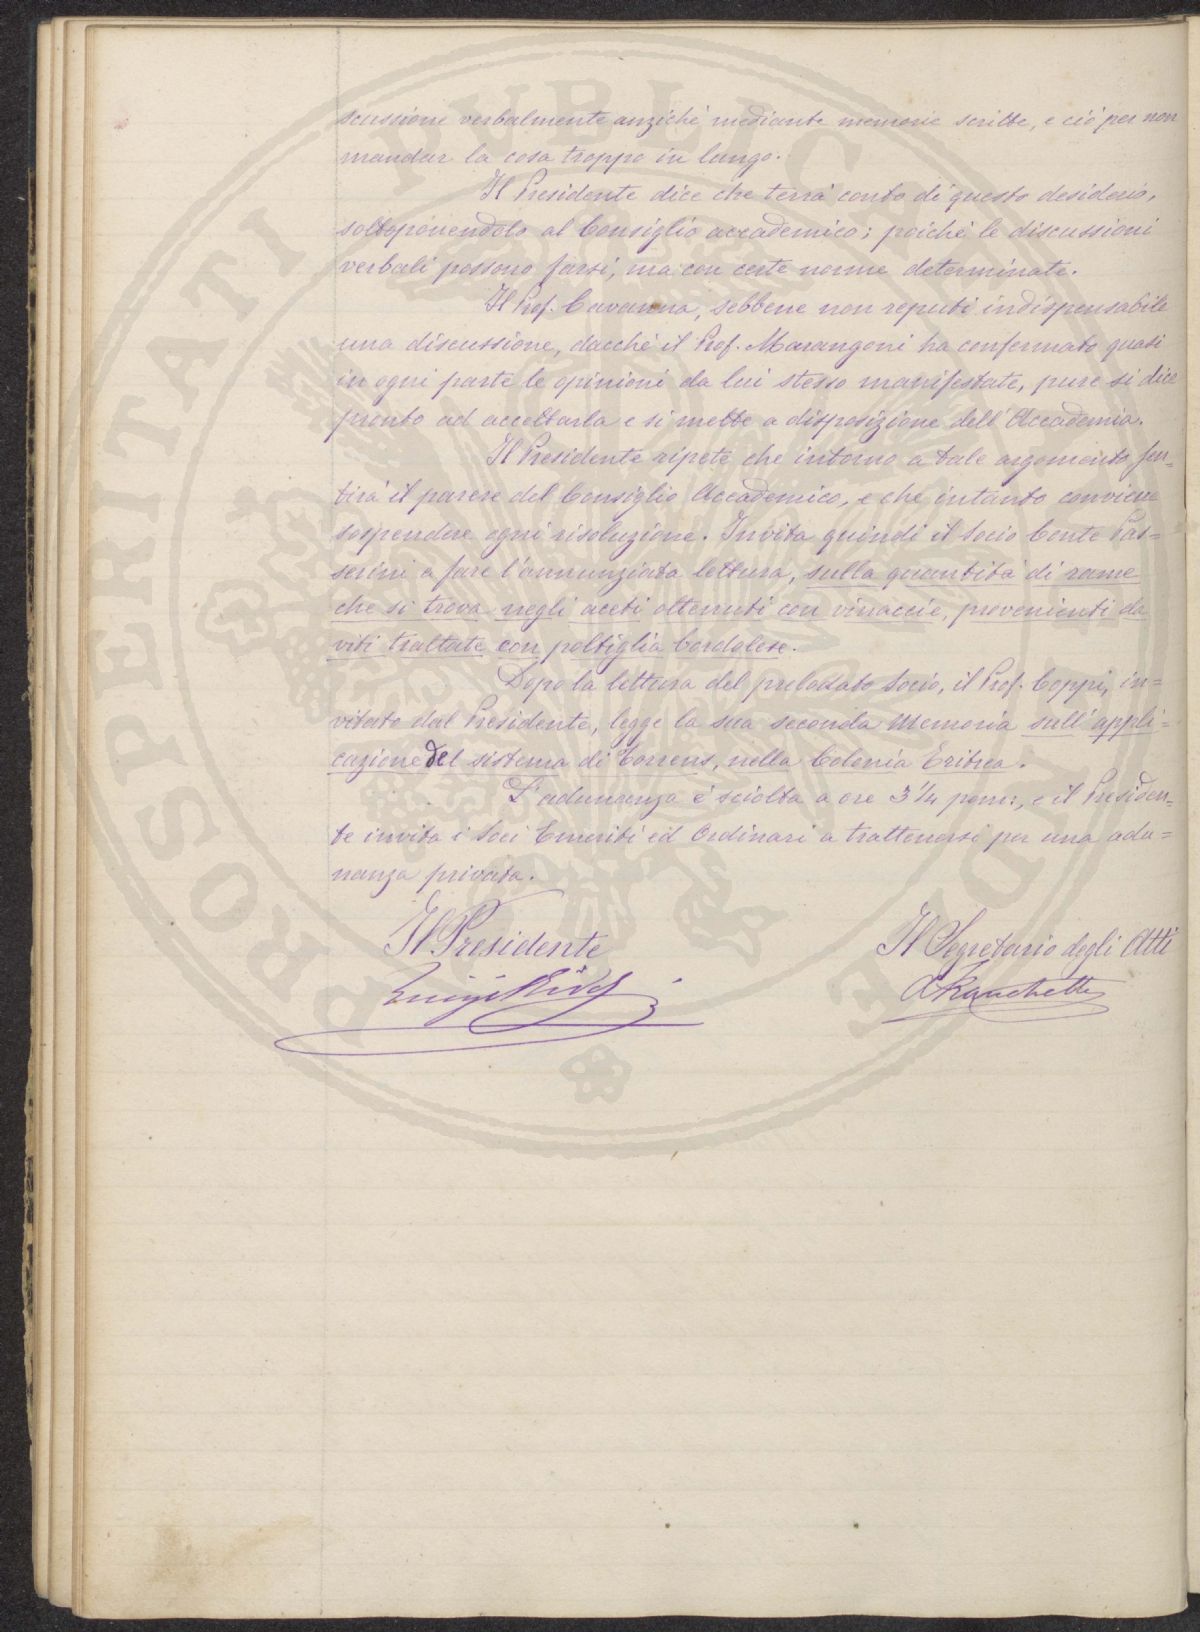 scussione verbalmente anziché mediante memorie scritte, e ciò per non
mandar la cosa troppo in lungo.
Il Presidente dice che terrà conto di questo desiderio,
sottoponendolo al Consiglio accademico; poiché le discussioni
verbali possono farsi, ma con certe norme determinate.
Il Prof. Cavanna, sebbene non reputi indispensabile
una discussione, dacché il Prof. Marangoni ha confermato quasi
in ogni parte le opinioni da lui stesso manifestate, pure si dice
pronto ad accettarla e si mette a disposizione dell'Accademia.
Il Presidente ripete che intorno a tale argomento sen=
tirà il parere del Consiglio Accademico, e che intanto conviene
sospendere ogni risoluzione. Invita quindi il Socio Conte Pas=
serini a fare l'annunziata lettura, sulla quantità di rame
che si trova negli aceti ottenuti con vinaccie, provenienti da
viti trattate con poltiglia bordolese.
Dopo la lettura del prelodato Socio, il Prof. Coppi, in=
vitato dal Presidente, legge la sua seconda Memoria sull'appli=
cazione del sistema di Torrens, nella Colonia Eritrea.
L'adunanza è sciolta a ore 3 1/4 pom:, e il Presiden=
te invita i Soci Emeriti ed Ordinari a trattenersi per una adu=
nanza privata.
Il Presidente
Il Segretario degli Atti
Luigi
PROSPERITATI PVBLICAE